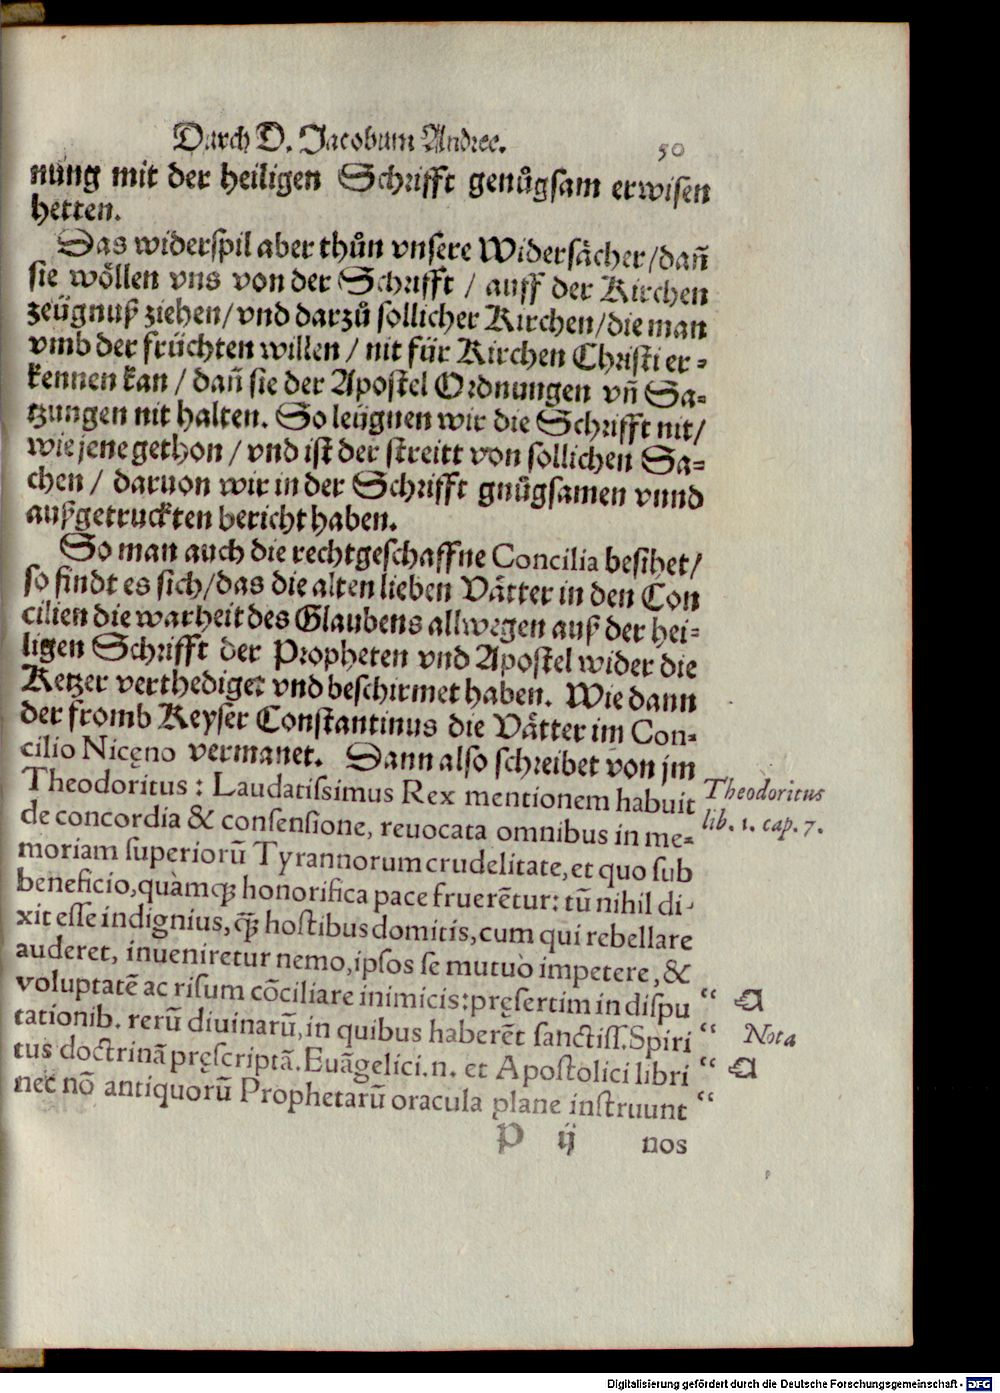 Durch D. Jacobum Andree. 50
nung mit der heiligen Schrifft genůgsam erwisen
hetten.
Das widerspil aber thůn vnsere Widersächer / dañ
sie wöllen vns von der Schrifft / auff der Kirchen
zeügnuß ziehen / vnd darzů sollicher Kirchen / die man
vmb der früchten willen / nit für Kirchen Christi er-
kennen kan / dañ sie der Apostel Ordnungen vñ Sa-
tzungen nit halten. So leügnen wir die Schrifft nit /
wie jene gethon / vnd ist der streitt von sollichen Sa-
chen / daruon wir in der Schrifft gnůgsamen vnnd
außgetruckten bericht haben.
So man auch die rechtgeschaffne Concilia besihet /
so findt es sich / das die alten lieben Vätter in den Con
cilien die warheit des Glaubens allwegen auß der hei-
ligen Schrifft der Propheten vnd Apostel wider die
Ketzer verthediget vnd beschirmet haben. Wie dann
der fromb Keyser Constantinus die Vätter im Con-
cilio Nicęno vermanet. Dann also schreibet von jm
Theodoritus : Laudatissimus Rex mentionem habuit
Theodoritus
lib. 1. cap. 7.
de concordia & consensione, reuocata omnibus in me-
moriam superiorũ Tyrannorum crudelitate, et quo sub
beneficio, quàmq́ꝫ honorifica pace fruerētur: tũ nihil di-
xit esse indignius, q̃ꝫ hostibus domitis, cum qui rebellare
auderet, inueniretur nemo, ipsos se mutuò impetere, &
voluptatē ac risum cōciliare inimicis: pręsertim in dispu “
tationib. rerũ diuinarũ, in quibus haberēt sanctiss. Spiri “
Nota
tus doctrinā pręscriptā. Euāgelici .n. et Apostolici libri “
nec nō antiquorũ Prophetarũ oracula plane instruunt “
P ij nos
Digitalisierung gefördert durch die Deutsche Forschungsgemeinschaft - DFG